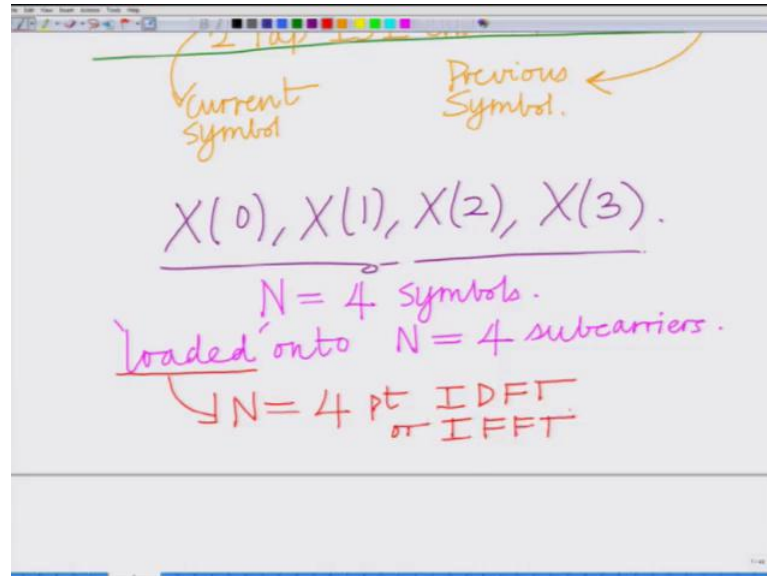 2 Tap ISI
Current
symbol
Previous
Symbol.
X(0), X(1), X(2), X(3).
N = 4 symbols.
'loaded' onto N = 4 subcarriers.
N = 4 pt IDFT
or IFFT